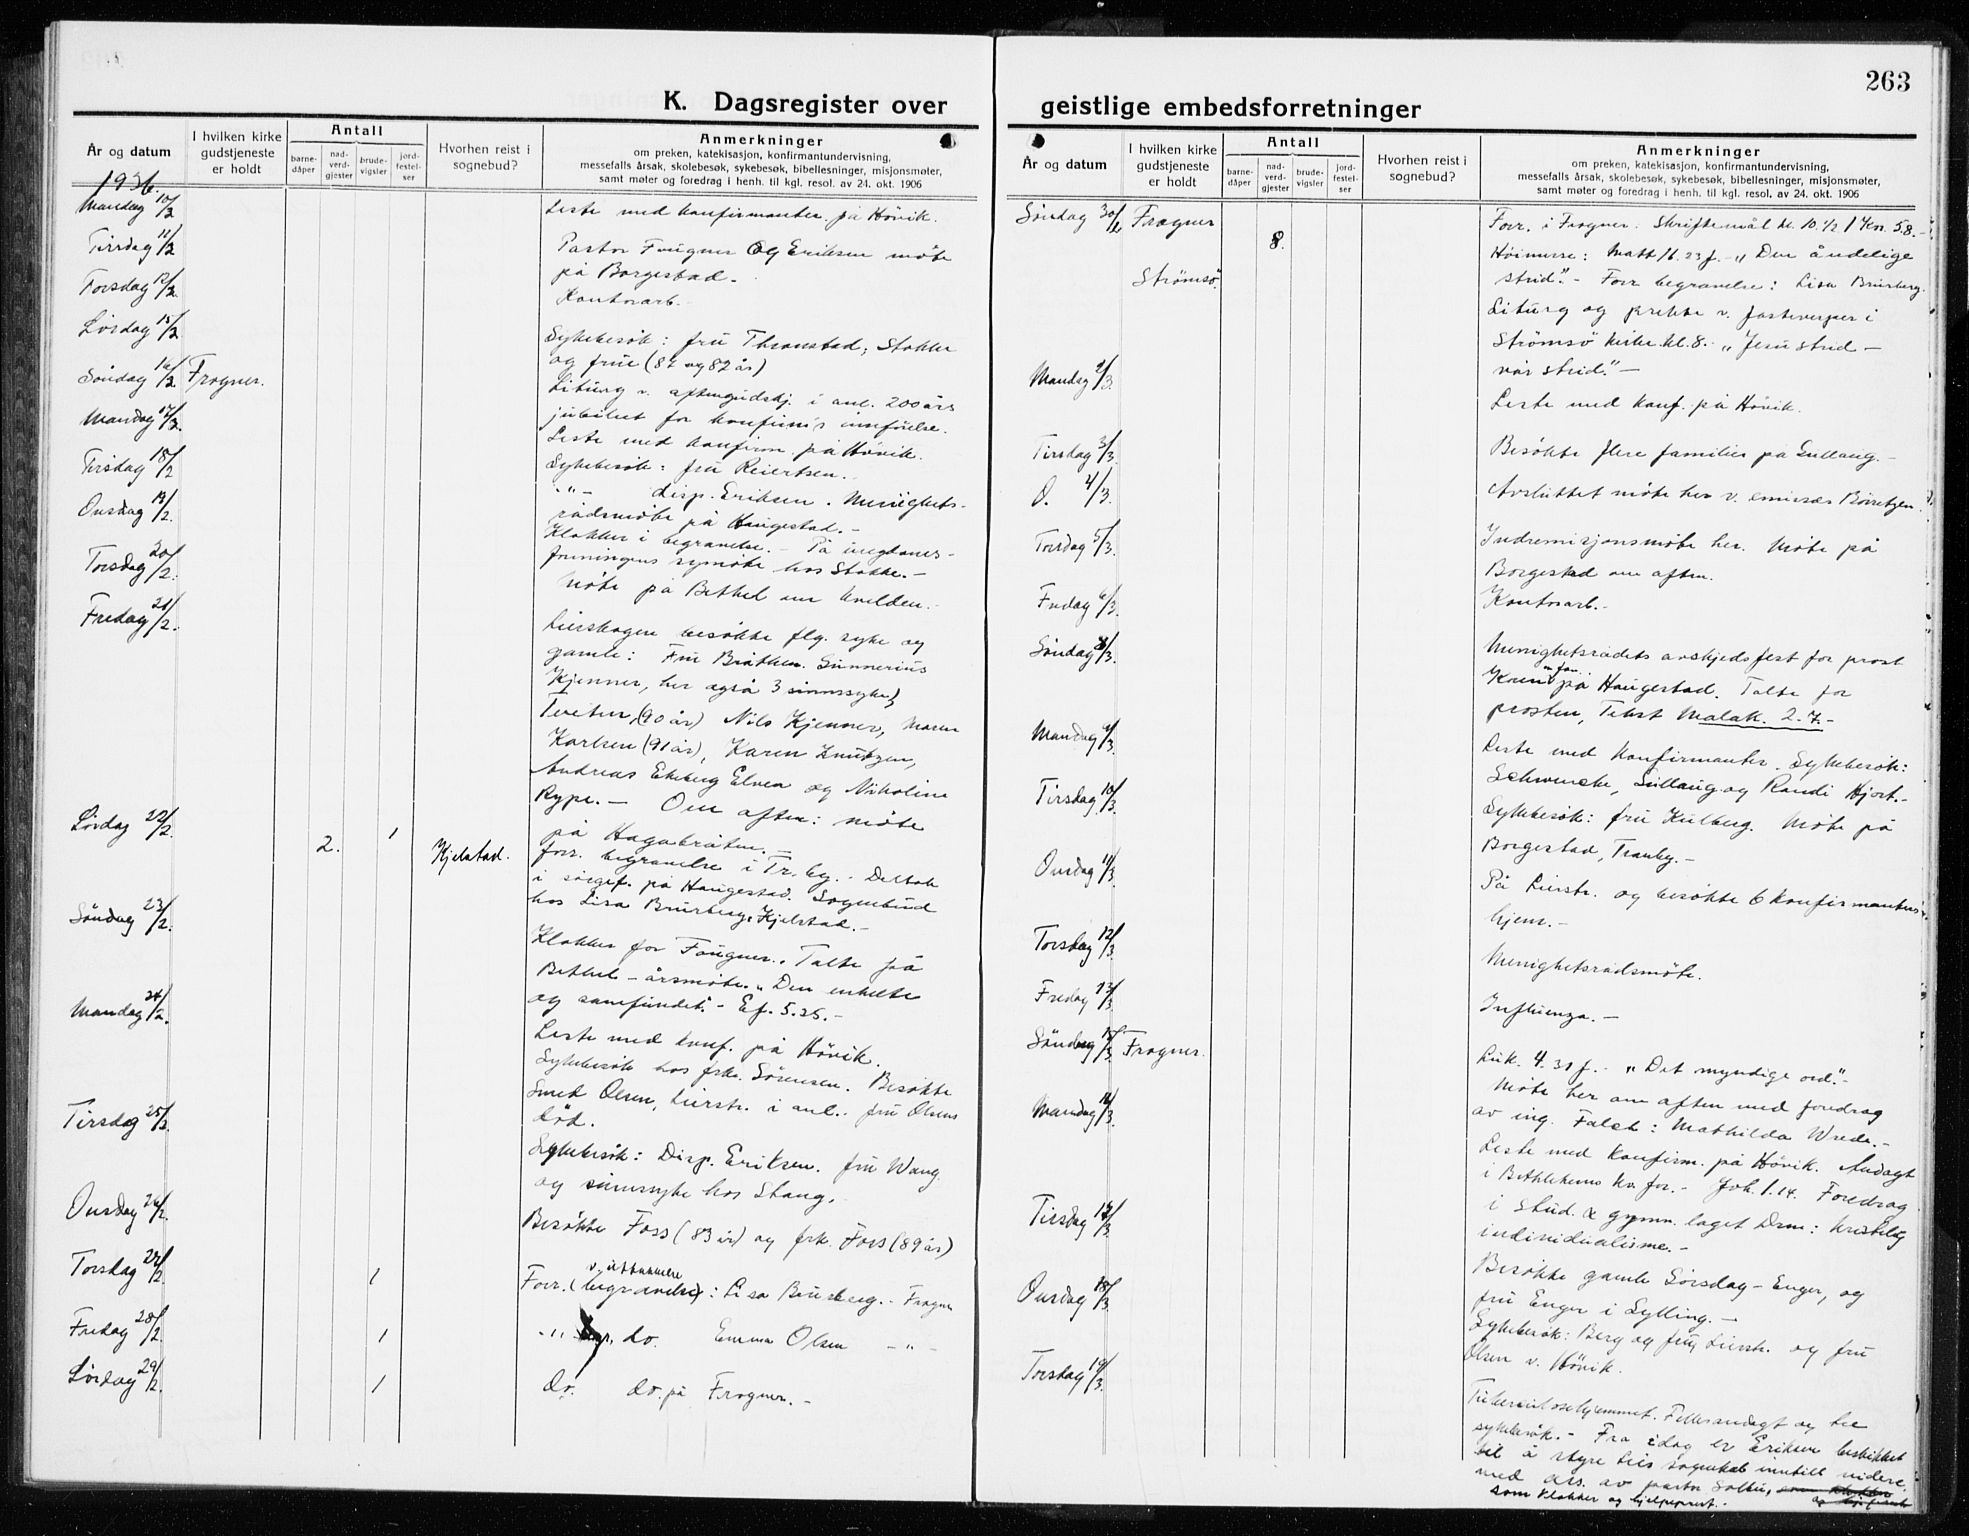 263
K. Dagsregister over
geistlige embedsforretninger
År og datum
I hvilken kirke
gudstjeneste
er holdt
Antall
barne-
dåper
nad-
verd-
gjester
brude-
vigsler
jord-
festel-
ser
Hvorhen reist i
sognebud?
Anmerkninger
om preken, katekisasjon, konfirmantundervisning,
messefalls årsak, skolebesøk, sykebesøk, bibellesninger, misjonsmøter,
samt møter og foredrag i henh. til kgl. resol. av 24. okt. 1906
1936.
Mandag 10/2 Leste med konfirmanter på Hövik.
Tirsdag 11/2 Pastor Fougner og Eriksen möte
på Borgestad.-
Torsdag 13/2 Kontorarb.-
Lördag 15/2 Sykebesök: fru Thronstad, Stokke
og frue (82 og 82 år)
Söndag 16/2 Frogner. Liturg v. aftengudstj. i anl. 200 års
jubileet for konfirm's innförelse.
Mandag 17/2 Leste med konfirm. på Hövik.
Tirsdag 18/2 Sykebesök: fru Reiertsen.
Onsdag 19/2 -"- disp. Eriksen. Menighets-
rådsmöte på Haugestad.-
Torsdag 20/2 Klokker i begravelse.- På ungdoms-
foreningens symöte hos Stokke.-
möte på Bethel om kvelden.-
Fredag 21/2 Lierskogen besökte flg. syke og
gamle: Fru Bråthen. Sunnerius
Kjenner, her også 3 sinnssyke)
(90 år) Nils Kjenner, Maren
Karlsen (91 år), Karen Knutzen,
Andreas Ekeberg Elven og Nikoline
Rype.- Om aften: möte
på Hagabråten.-
Lördag 22/2 2. 1 Kjelstad. forr. begravelse i Tr. by.- Deltok
i sörgef. på Haugestad. Sognebud
hos Lisa Brurberg, Kjelstad.-
Söndag 23/2 Klokker for Fougner. Talte på
Bethel-årsmöte. "Den enkelte
og samfundet".- Ef. 5.25.-
Mandag 24/2 Leste med konf. på Hövik.
Sykebesök hos frk. Sörensen. Besökte
Smed Olsen, Lierstr. i anl. fru Olsens
död.
Tirsdag 25/2 Sykebesök: Disp. Eriksen. fru Wang
og sinnssyke hos Stang.
Onsdag 26/2 Besökte Foss (83 år) og frk. Foss (89 år)
Torsdag 27/2 1 Forr. (begravelse): Lisa Brurberg.- Frogner
Fredag 28/2 1 -"- do. Emma Olsen -"-
Lördag 29/2 1 do. do. på Frogner.-
År og datum
I hvilken kirke
gudstjeneste
er holdt
Antall
barne-
dåper
nad-
verd-
gjester
brude-
vigsler
jord-
festel-
ser
Hvorhen reist i
sognebud?
Anmerkninger
om preken, katekisasjon, konfirmantundervisning,
messefalls årsak, skolebesøk, sykebesøk, bibellesninger, misjonsmøter,
samt møter og foredrag i henh. til kgl. resol. av 24. okt. 1906
Söndag Frogner 8. Forr. i Frogner. Skriftemål kl. 10.½ 5.8.-
Höimesse: Matt 16. 23 f.- "Den åndelige
strid".- Forr begravelse: Lisa Brurberg.
Strömsö. Liturg og prekte v. fastevesper i
Strömsö kirke kl. 8.- "Jesu strid-
vår strid".-
Mandag 2/3 Leste med konf. på Hövik.
Tirsdag 3/3 Besökte flere familier på Gullaug.-
O. 4/3. Avsluttet möte her v. emissær
Torsdag 5/3. Indremisjonsmöte her. Möte på
Borgestad om aften.
Fredag 6/3. Kontorarb.-
Söndag 8/3. Menighetsrådets avskjedsfest for prost
på Haugestad. Talte for
prosten, Tekst Malak. 2.7.-
Mandag 9/3. Leste med konfirmanter. Sykebesök:
Schwencke, Gullaug og Randi Hjort.-
Tirsdag 10/3 Sykebesök: fru Kulberg. Möte på
Borgestad, Tranby.-
Onsdag 11/3. På Lierstr. og besökte 6 konfirmanters
hjem.-
Torsdag 12/3. Menighetsrådsmöte.
Fredag 13/3. Influenza.-
Söndag 15/3. Frogner. Luk. 4. 31 f.- "Det myndige ord".-
Möte her om aften med foredrag
av ing. Falck: Mathilda Wrede.-
Mandag 16/3. Leste med konfirm. på Hövik. Andagt
i Bethlehems kv. for.- Joh. 1.14. Foredrag
i Stud. & gymn. laget Drm: kristelig
individualisme.-
Tirsdag 17/3. Besökte gamle Sörsdag-Enger, og
fru Enger i Sylling.-
Onsdag 18/3. Sykebesök: Berg og fru, Lierstr. og fru
Olsen v. Hövik.
Torsdag 19/3. Tuberkulosehjemmet. Fellesandagt og tre
sykebesök.- Fra idag er Eriksen beskikket
til å styre Lier sognekall inntill videre
med ass. av pastor
som klokker og hjelpeprest.-